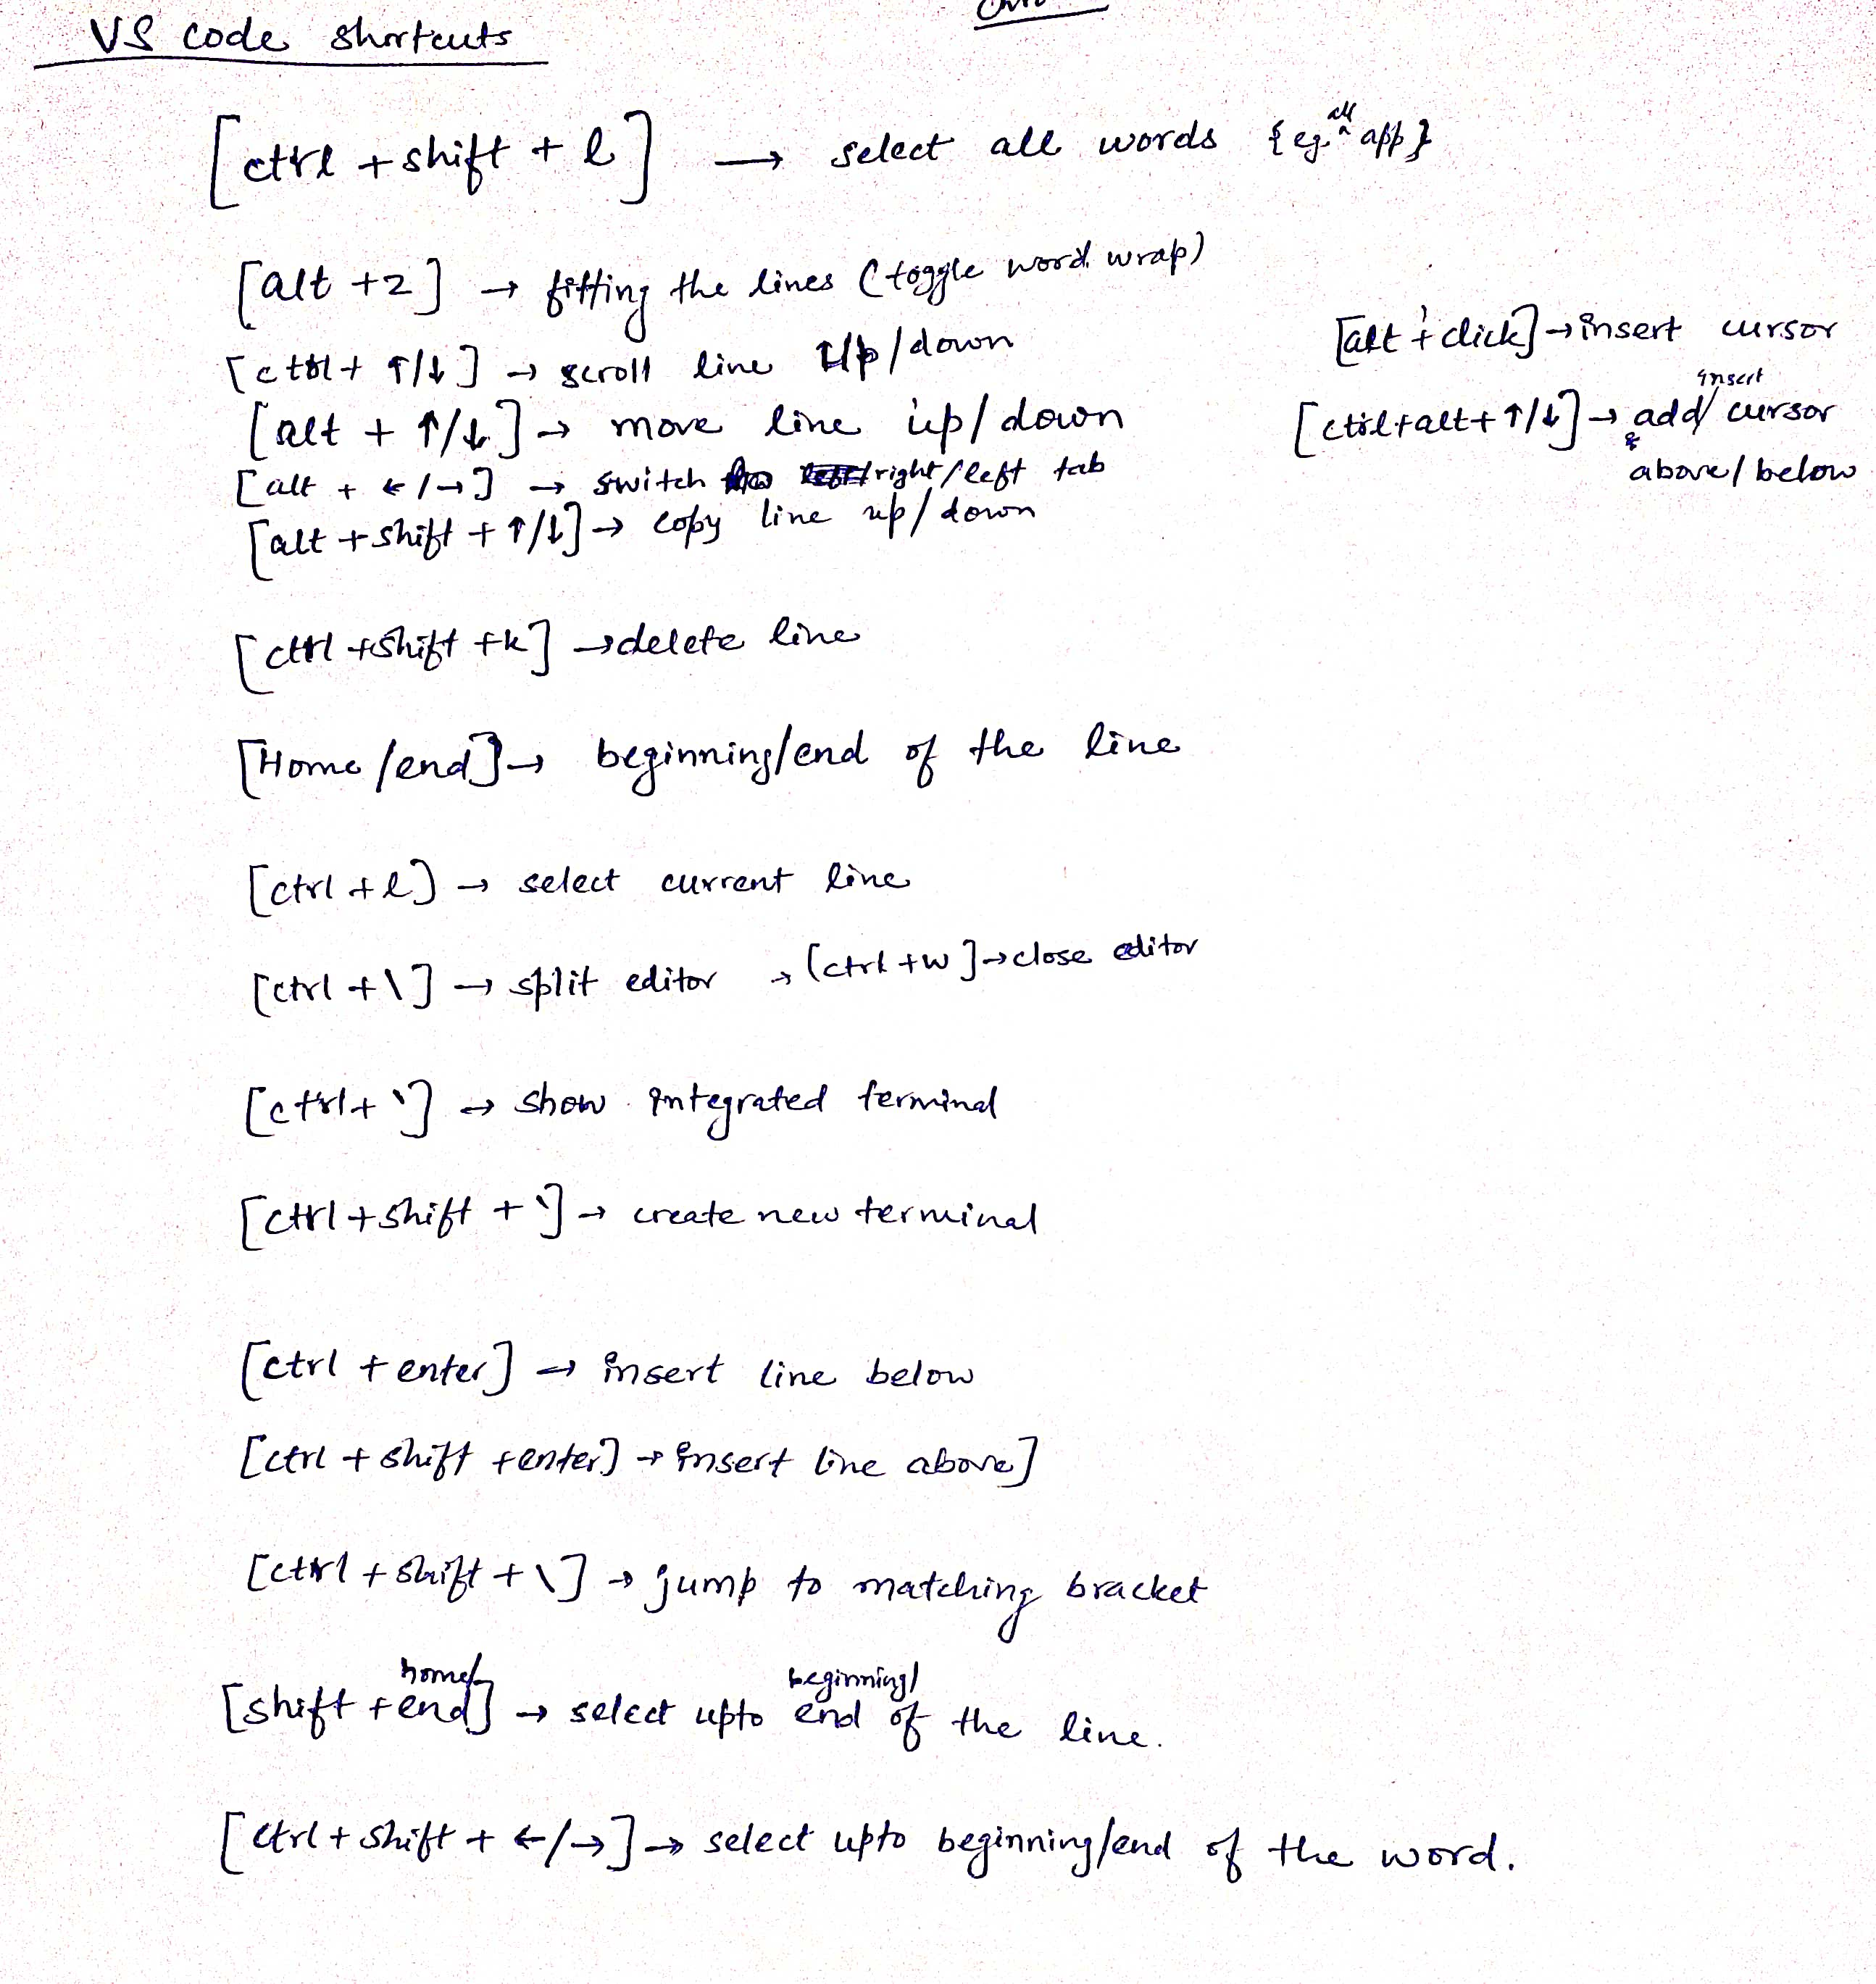 VS code shortcuts
[ctrl + shift + l] → select all words {eg. all app}
[alt + z] → fitting the lines (toggle word wrap)
[ctrl + ↑/↓] → scroll line up/down
[alt + click] → insert cursor
[alt + ↑/↓] → move line up/down
[ctrl + alt + ↑/↓] → add/insert cursor
above/below
[alt + ←/→] → switch right/left tab
[alt + shift + ↑/↓] → copy line up/down
[ctrl + shift + k] → delete line
[Home/end] → beginning/end of the line
[ctrl + l] → select current line
[ctrl + \] → split editor → [ctrl + w] → close editor
[ctrl + `] → show integrated terminal
[ctrl + shift + `] → create new terminal
[ctrl + enter] → insert line below
[ctrl + shift + enter] → insert line above]
[ctrl + shift + \] → jump to matching bracket
[shift + home/end] → select upto beginning/end of the line.
[ctrl + shift + ←/→] → select upto beginning/end of the word.